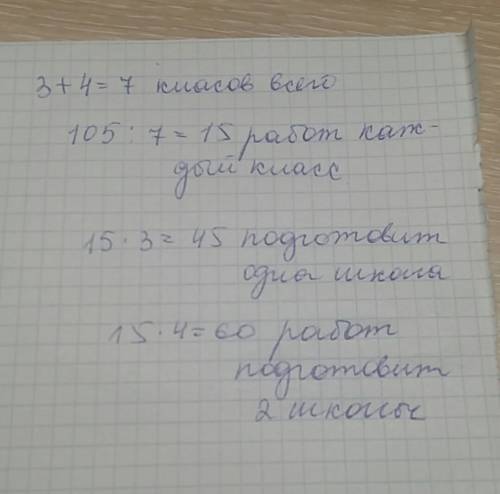 3+4=7 класов всего
105:7=15 работ каж-
дый класс
15·3=45 подготовит
одна школа
15·4=60 работ
подготовит
2 школы